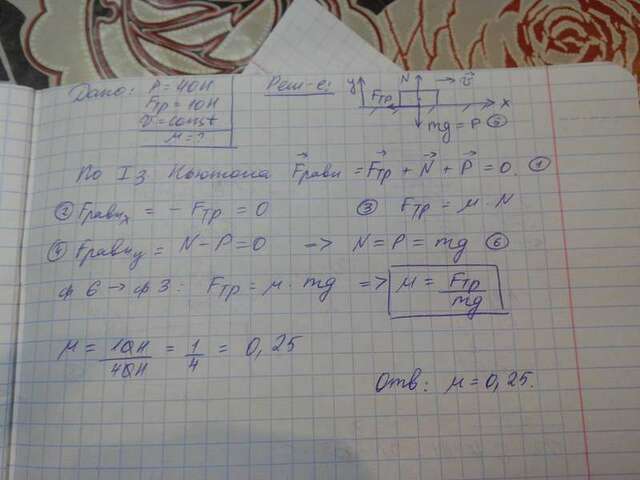 Дано: P = 40Н
Fтр = 10Н
v⃗ = const
μ = ?
Реш-е:
y N v⃗
Fтр x
mg = P ⑤
По I з Ньютона F⃗равн = F⃗тр + N⃗ + P⃗ = 0. ①
② Fравнx = - Fтр = 0 ③ Fтр = μ · N
④ Fравнy = N - P = 0 -> N = P = mg ⑥
ф 6 → ф 3: Fтр = μ · mg => μ = Fтр / mg
μ = 10Н / 40Н = 1/4 = 0,25
Отв: μ = 0,25.